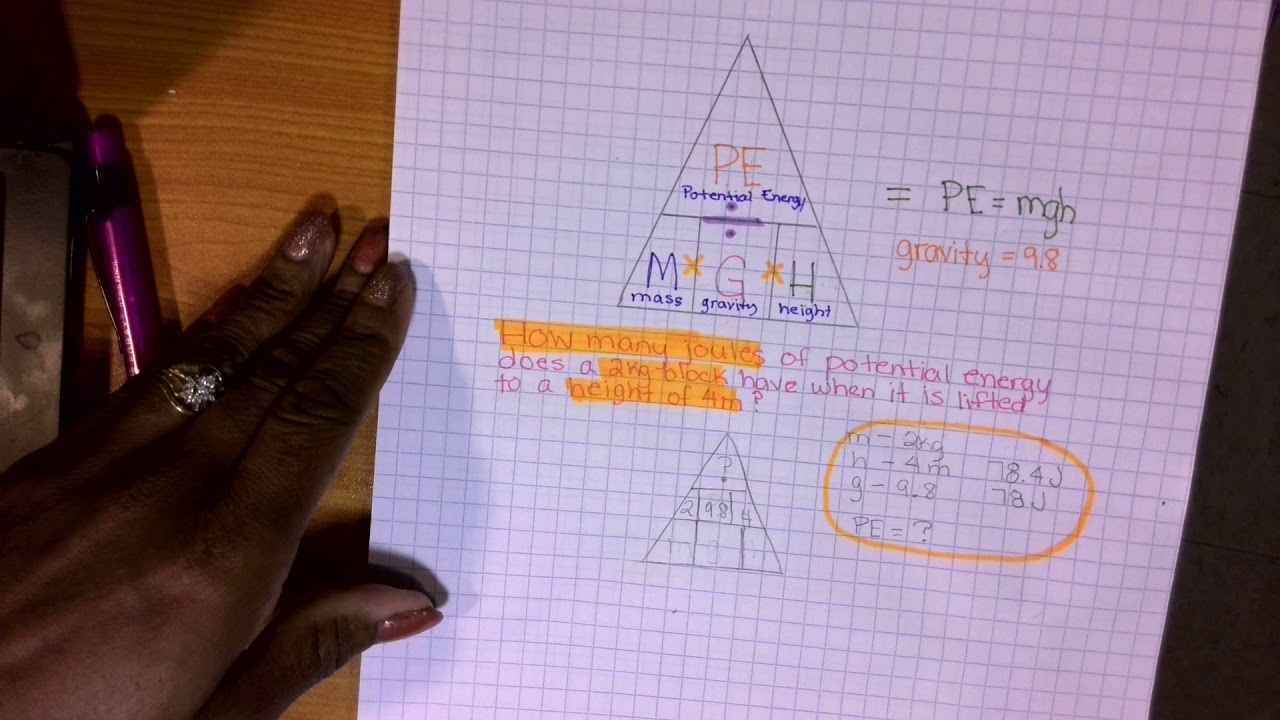 PE
Potential Energy
÷
M * G * H
mass gravity height
= PE = mgh
gravity = 9.8
How many joules of potential energy
does a 2kg block have when it is lifted
to a height of 4m?
?
2 9.8 4
m g
m - 2kg
h - 4m 78.4J
g - 9.8 78J
PE = ?